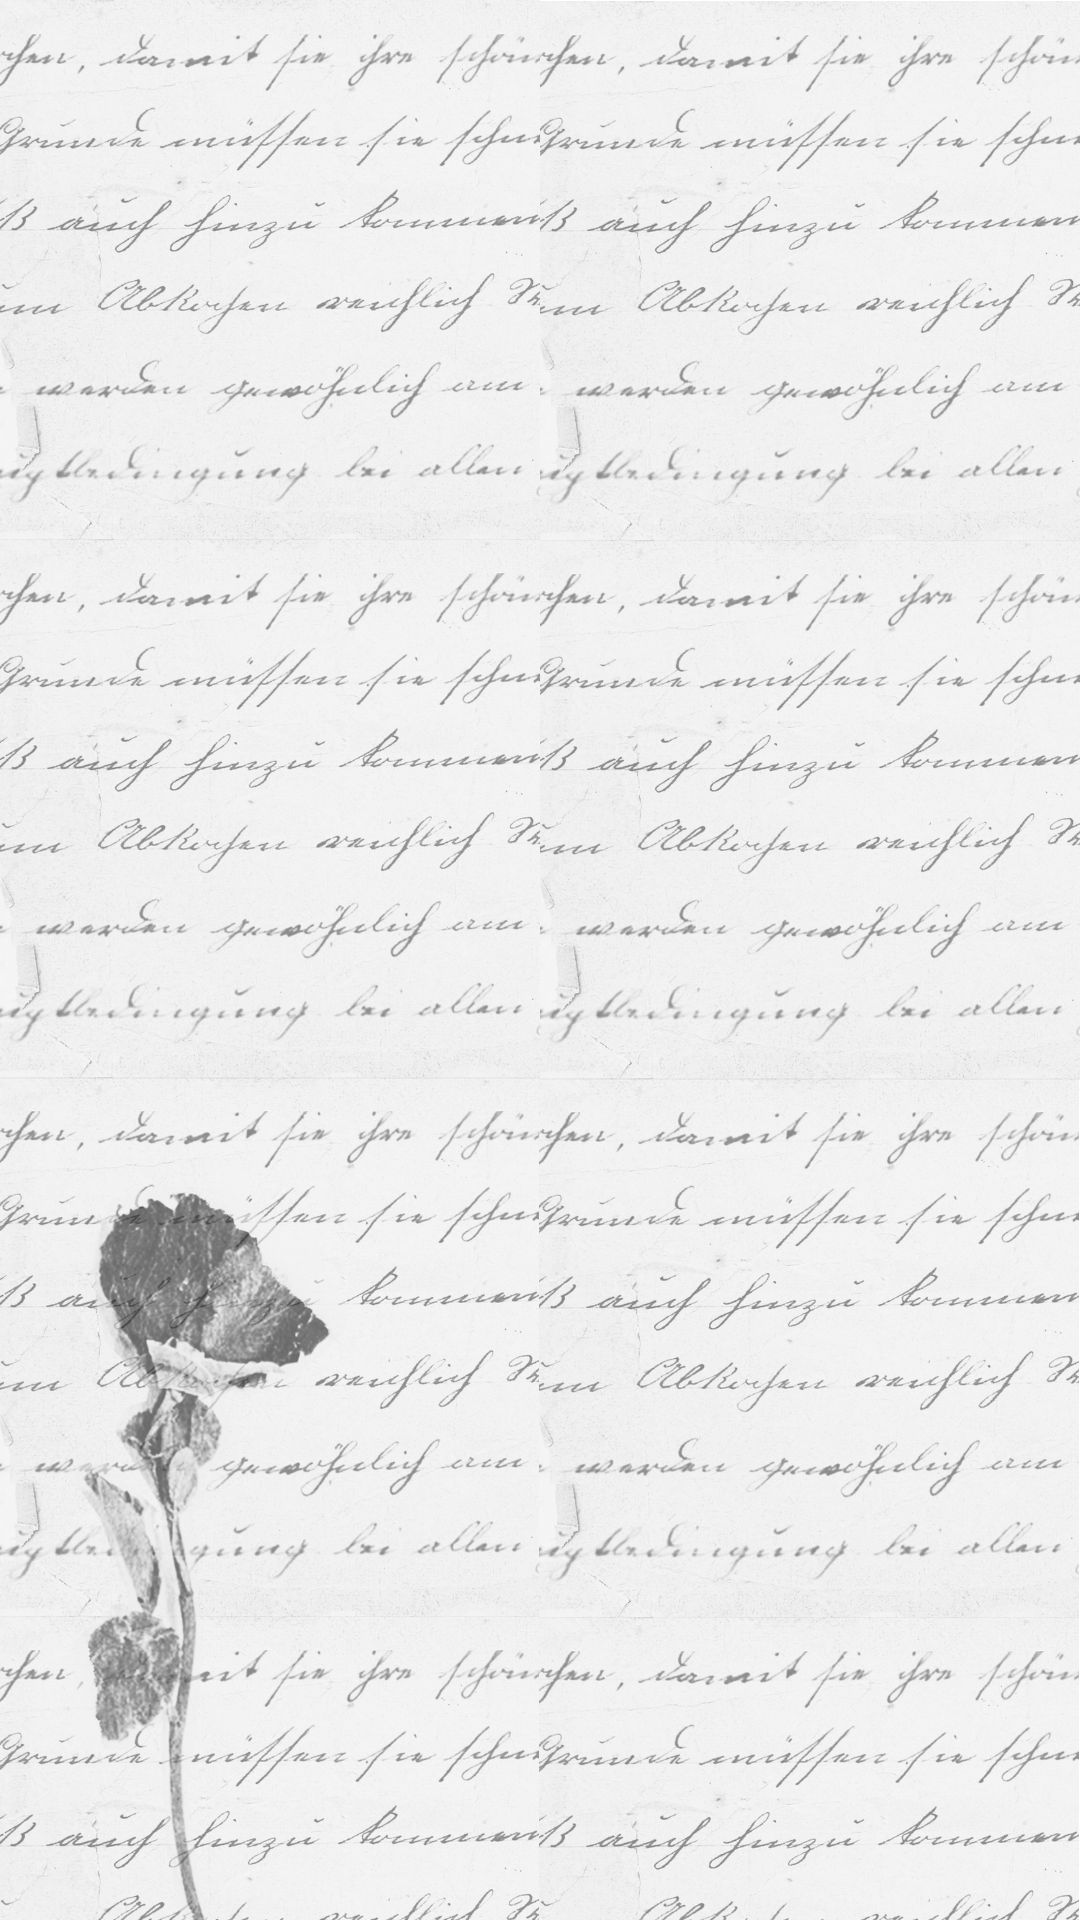 chen, damit sie ihre schön chen, damit sie ihre schön
Grunde müssen sie schn Grunde müssen sie schn
ß auch hinzu kommen ß auch hinzu kommen
Abkochen reichlich Abkochen reichlich
werden gewöhnlich am werden gewöhnlich am
uptbedingung bei allen uptbedingung bei allen
chen, damit sie ihre schön chen, damit sie ihre schön
Grunde müssen sie schn Grunde müssen sie schn
ß auch hinzu kommen ß auch hinzu kommen
Abkochen reichlich Abkochen reichlich
werden gewöhnlich am werden gewöhnlich am
uptbedingung bei allen uptbedingung bei allen
chen, damit sie ihre schön chen, damit sie ihre schön
Grunde müssen sie schn Grunde müssen sie schn
ß auch hinzu kommen ß auch hinzu kommen
Abkochen reichlich Abkochen reichlich
werden gewöhnlich am werden gewöhnlich am
uptbedingung bei allen uptbedingung bei allen
chen, damit sie ihre schön chen, damit sie ihre schön
Grunde müssen sie schn Grunde müssen sie schn
ß auch hinzu kommen ß auch hinzu kommen